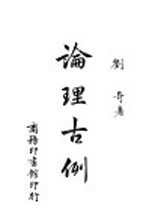 劉奇著
論理古例
商務印書館印行